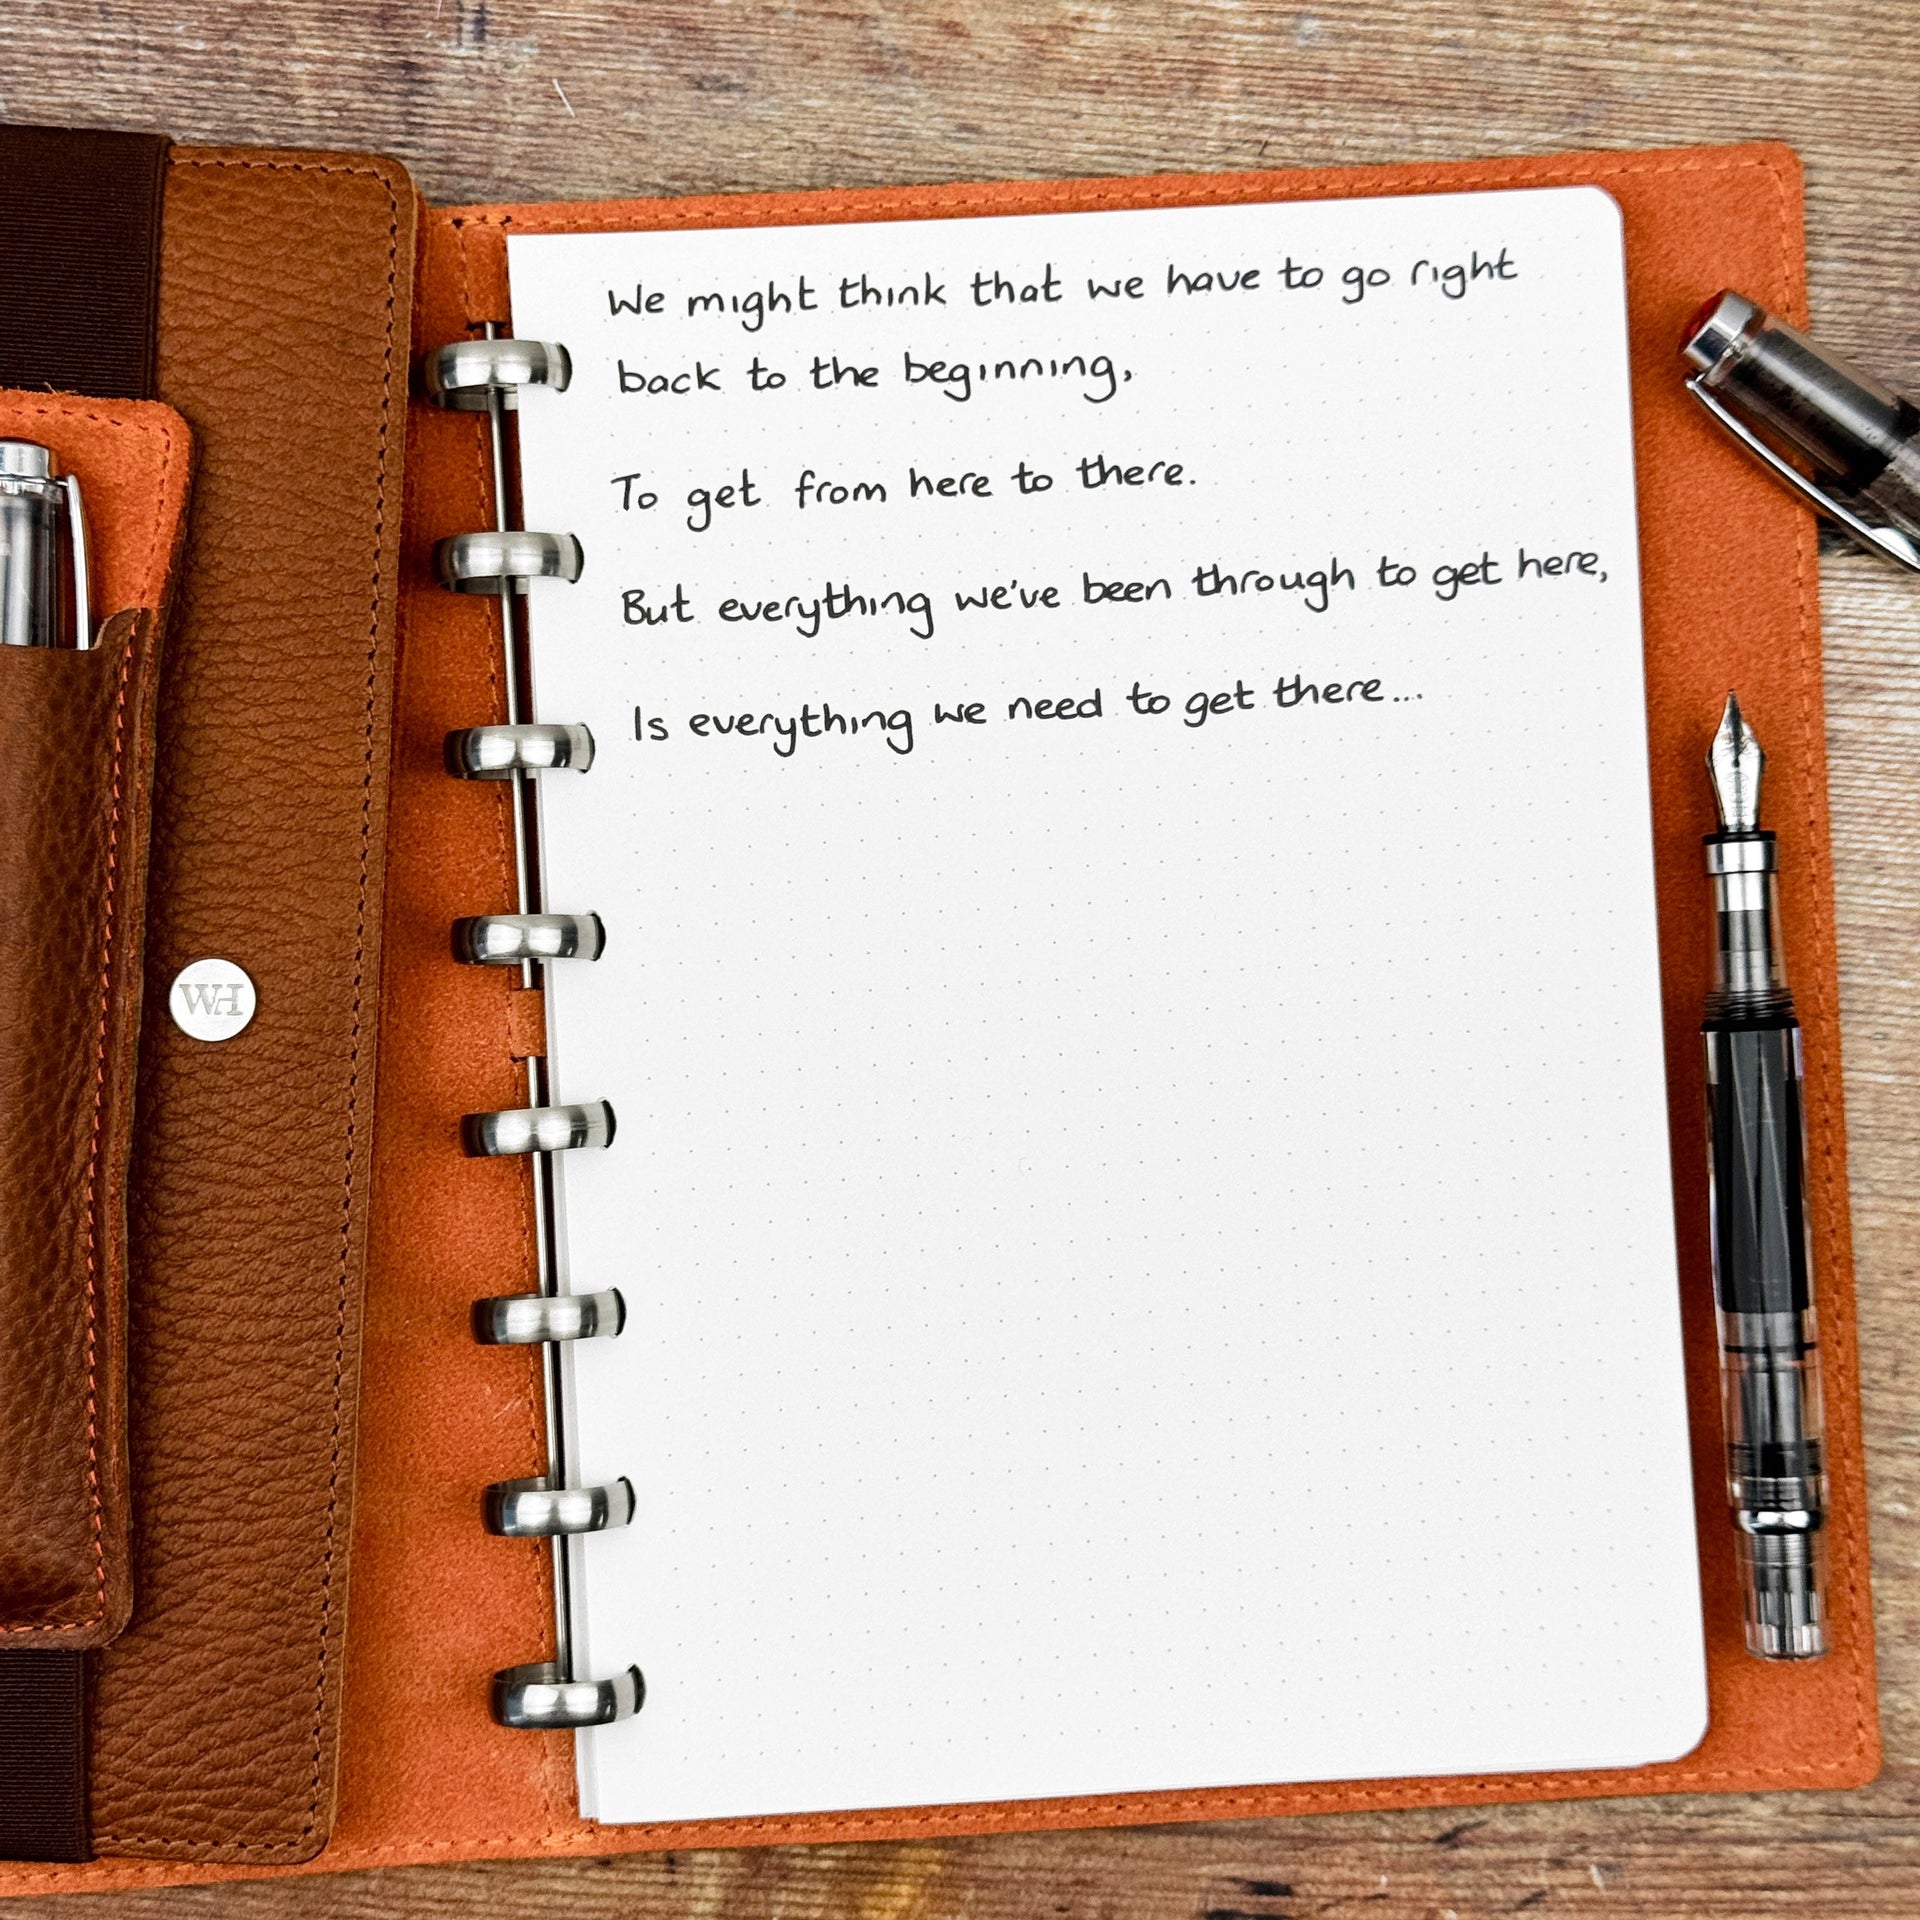 We might think that we have to go right
back to the beginning,
To get from here to there.
But everything we've been through to get here,
Is everything we need to get there...
WH